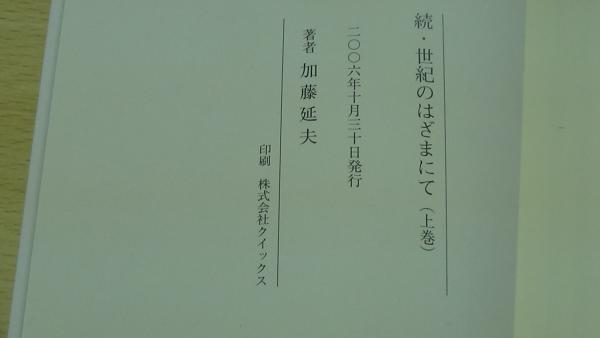 続・世紀のはざまにて（上巻）
二〇〇六年十月三十日発行
著者 加藤延夫
印刷 株式会社クイックス